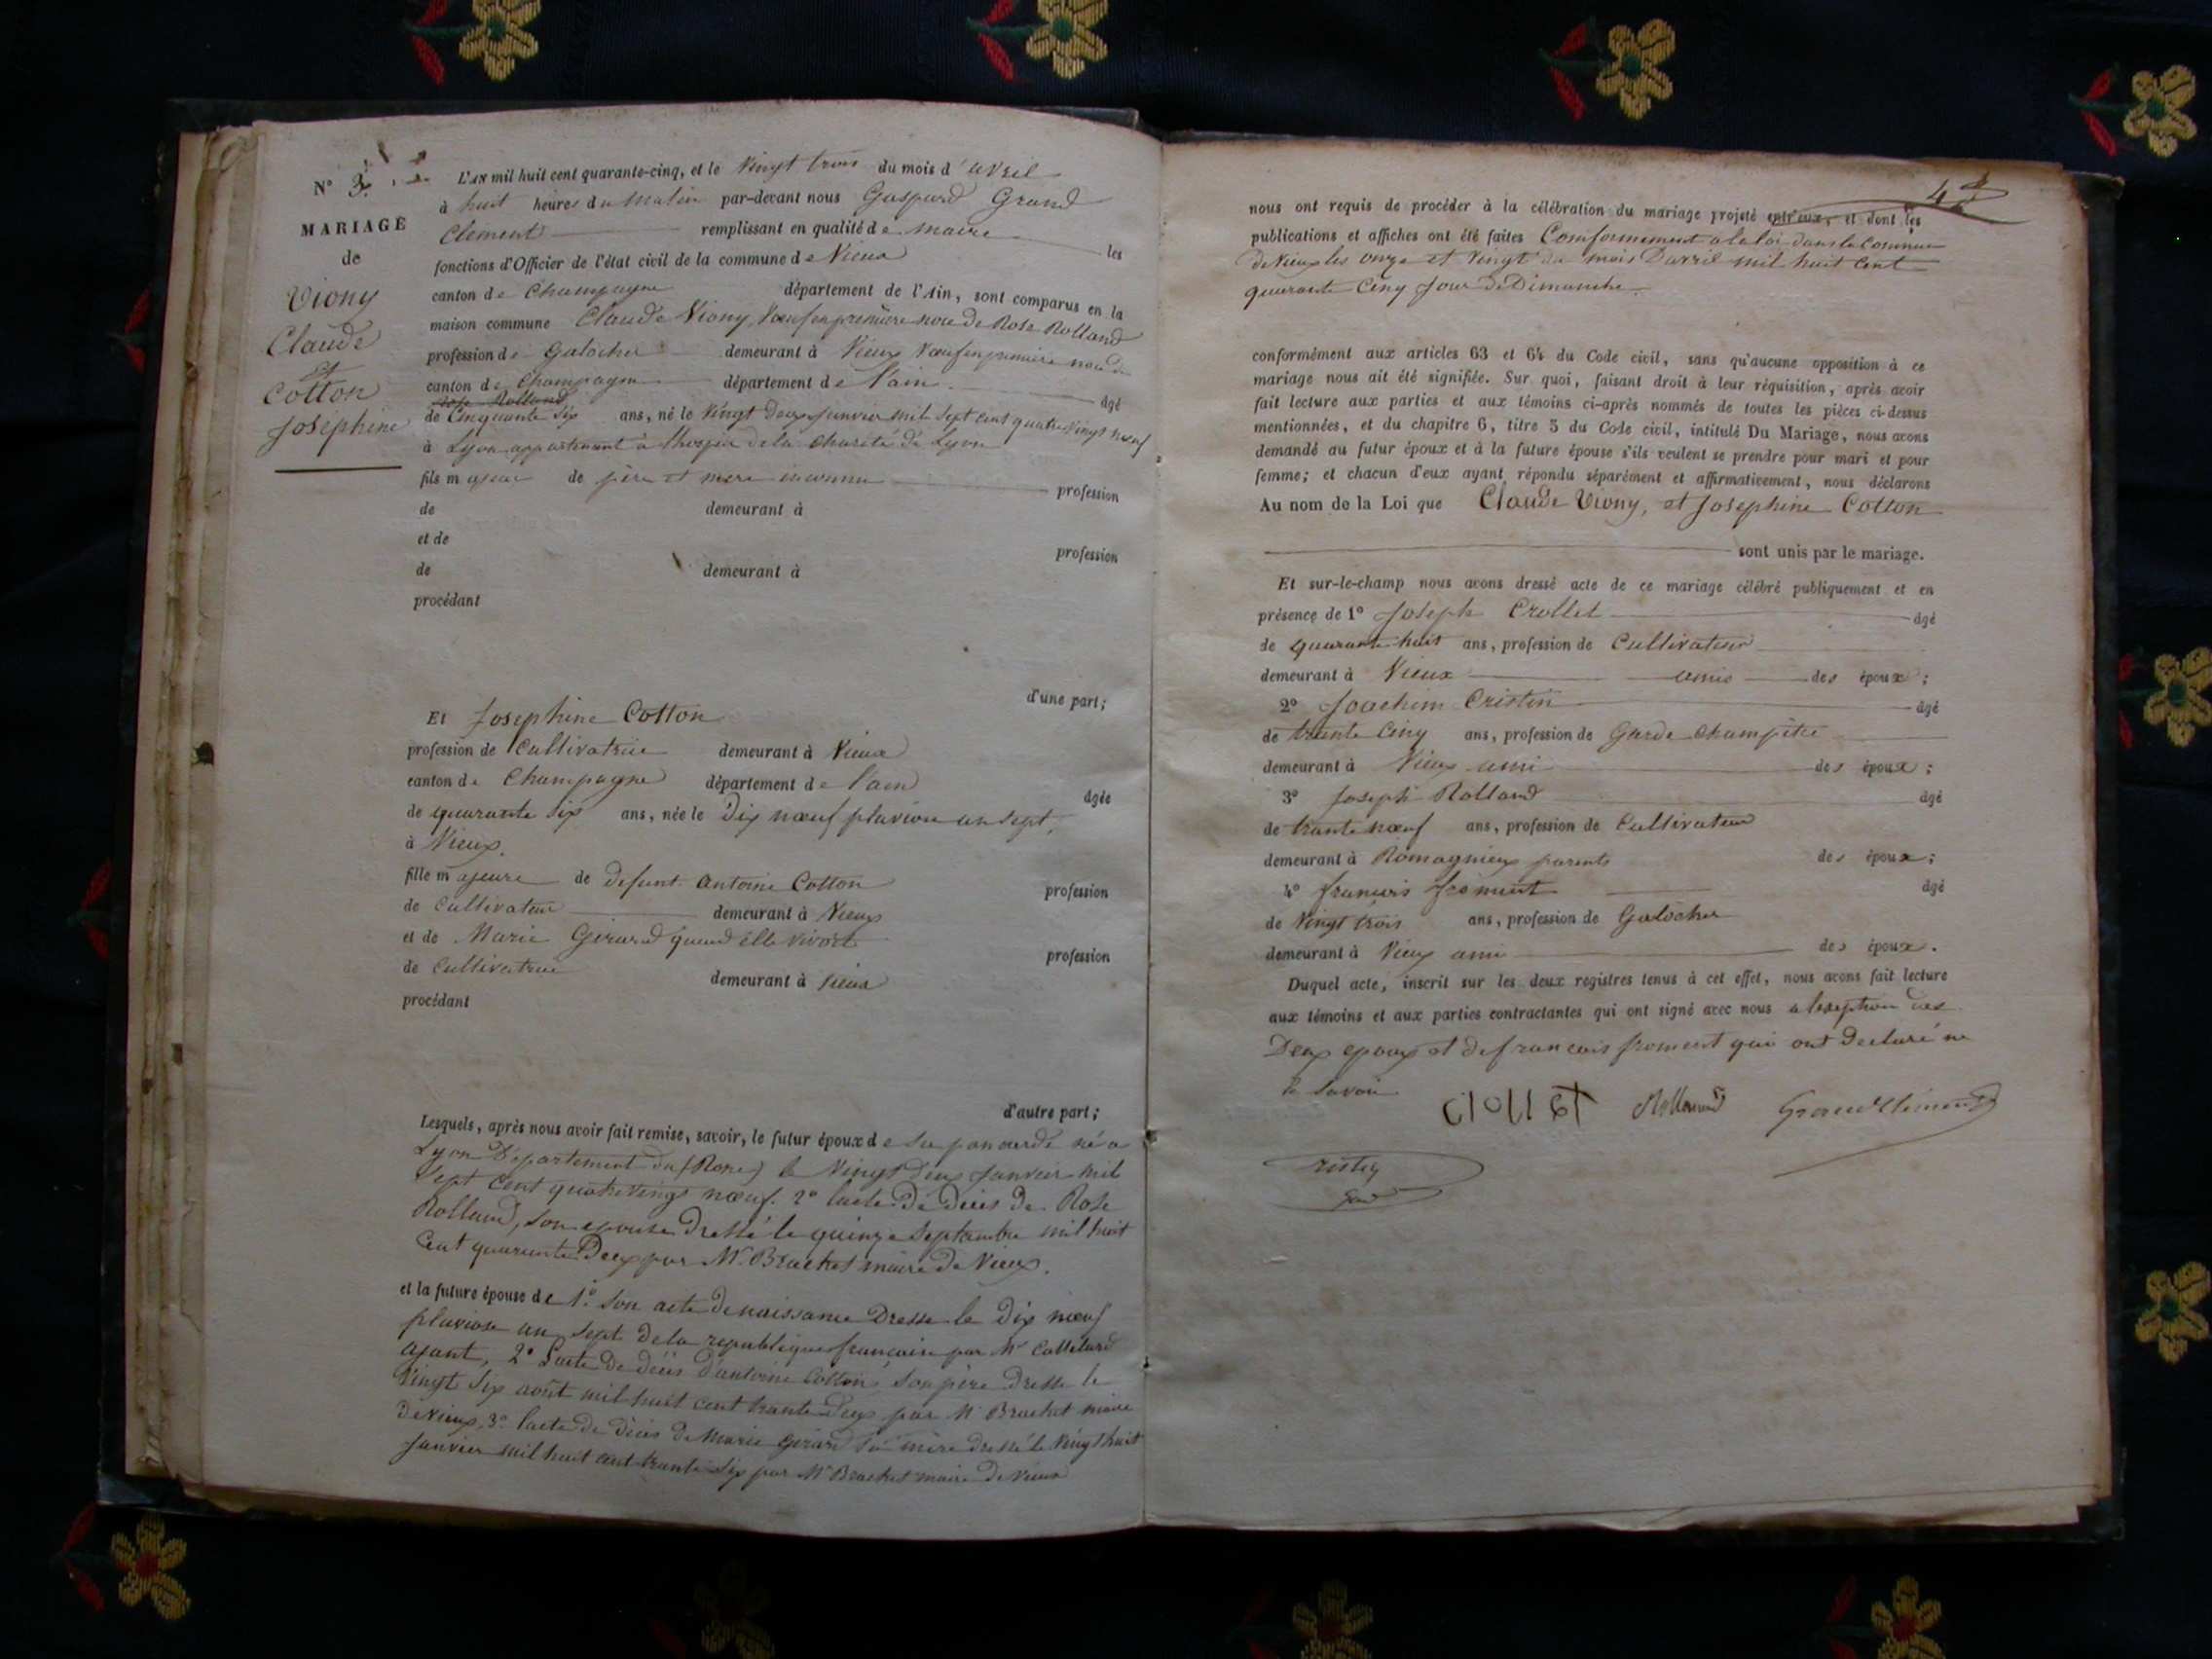 N° 3.
MARIAGE
de
Viony
Claude
Et
Cotton
Josephine
L'AN mil huit cent quarante-cinq, et le Vingt trois du mois d'avril
à huit heures du Matin par-devant nous Gaspard Grand
Clement remplissant en qualité de maire les
fonctions d'Officier de l'état civil de la commune de Vieux
canton de Champagne département de l'Ain, sont comparus en la
maison commune Claude Viony, Vœuf en première noce de Rose Rolland
profession de Galocher demeurant à Vieux Vœuf en première noce de
canton de Champagne département de l'ain âgé
Rose Rolland
de Cinquante six ans, né le Vingt deux Janvier mil sept cent quatre Vingt nœuf
à Lyon appartenant à lhospice de la charité de Lyon
fils majeur de père et mere inconnu profession
de demeurant à
et de profession
de demeurant à
procédant
d'une part;
Et Josephine Cotton
profession de Cultivatrice demeurant à Vieux
canton de Champagne département de l'ain âgée
de quarante six ans, née le Dix nœuf pluviose an sept,
à Vieux.
fille majeure de defunt antoine Cotton profession
de Cultivateur demeurant à Vieux
et de Marie Girard quand elle vivoit profession
de Cultivatrice demeurant à Vieux
procédant
d'autre part;
Lesquels, après nous avoir fait remise, savoir, le futur époux de né a
Lyon Departement du (Rone) le Vingt Deux Janvier mil
sept cent quatrevingt nœuf. 2° lacte De Décès De Rose
Rolland, son epouse Dressé le quinze Septembre mil huit
Cent quarante Deux par Mr. Brachet maire De Vieux.
et la future épouse de 1°. son acte De naissance Dresse le Dix nœuf
pluviose an sept de la republique francaise par Mr Collitard
ajant, 2° Lacte De décès D'antoine Cotton son père Dresse le
Vingt six août mil huit cent trante Deux par Mr Brachet maire
de Vieux, 3° lacte De décès De Marie girard sa mère dressé le Vingt huit
Janvier mil huit cent trante six par Mr Brachet maire De Vieux
4
nous ont requis de procéder à la célébration du mariage projeté entr'eux, et dont les
publications et affiches ont été faites Conformement a la loi dans la Commune
de Vieux les onze et Vingt du mois Davril mil huit Cent
quarante Cinq Jour De Dimanche.
conformément aux articles 63 et 64 du Code civil, sans qu'aucune opposition à ce
mariage nous ait été signifiée. Sur quoi, faisant droit à leur réquisition, après avoir
fait lecture aux parties et aux témoins ci-après nommés de toutes les pièces ci-dessus
mentionnées, et du chapitre 6, titre 5 du Code civil, intitulé Du Mariage, nous avons
demandé au futur époux et à la future épouse s'ils veulent se prendre pour mari et pour
femme; et chacun d'eux ayant répondu séparément et affirmativement, nous déclarons
Au nom de la Loi que Claude Viony, et Josephine Cotton
sont unis par le mariage.
Et sur-le-champ nous avons dressé acte de ce mariage célébré publiquement et en
présence de 1° Joseph Crollet âgé
de quarante huit ans, profession de Cultivateur
demeurant à Vieux amis des époux;
2° Joachim Cristin âgé
de trante Cinq ans, profession de Garde champêtre
demeurant à Vieux ami des époux;
3° Joseph Rolland âgé
de trante nœuf ans, profession de Cultivateur
demeurant à Romagnieux parents des époux;
4° francois froment âgé
de Vingt trois ans, profession de Galocher
demeurant à Vieux ami des époux.
Duquel acte, inscrit sur les deux registres tenus à cet effet, nous avons fait lecture
aux témoins et aux parties contractantes qui ont signé avec nous a lexeption des
Deux epoux et de francois froment qui ont Declaré ne
le savoir
Crollet Rolland Grand Clement